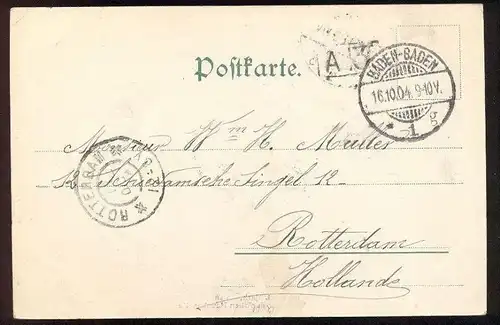 Postkarte.
A
BADEN-BADEN
16.10.04. 9-10V.
* 1 g
g
Monsieur Wm H. Muller
12 Schiedamsche Singel 12
ROTTERDAM
Rotterdam
Hollande